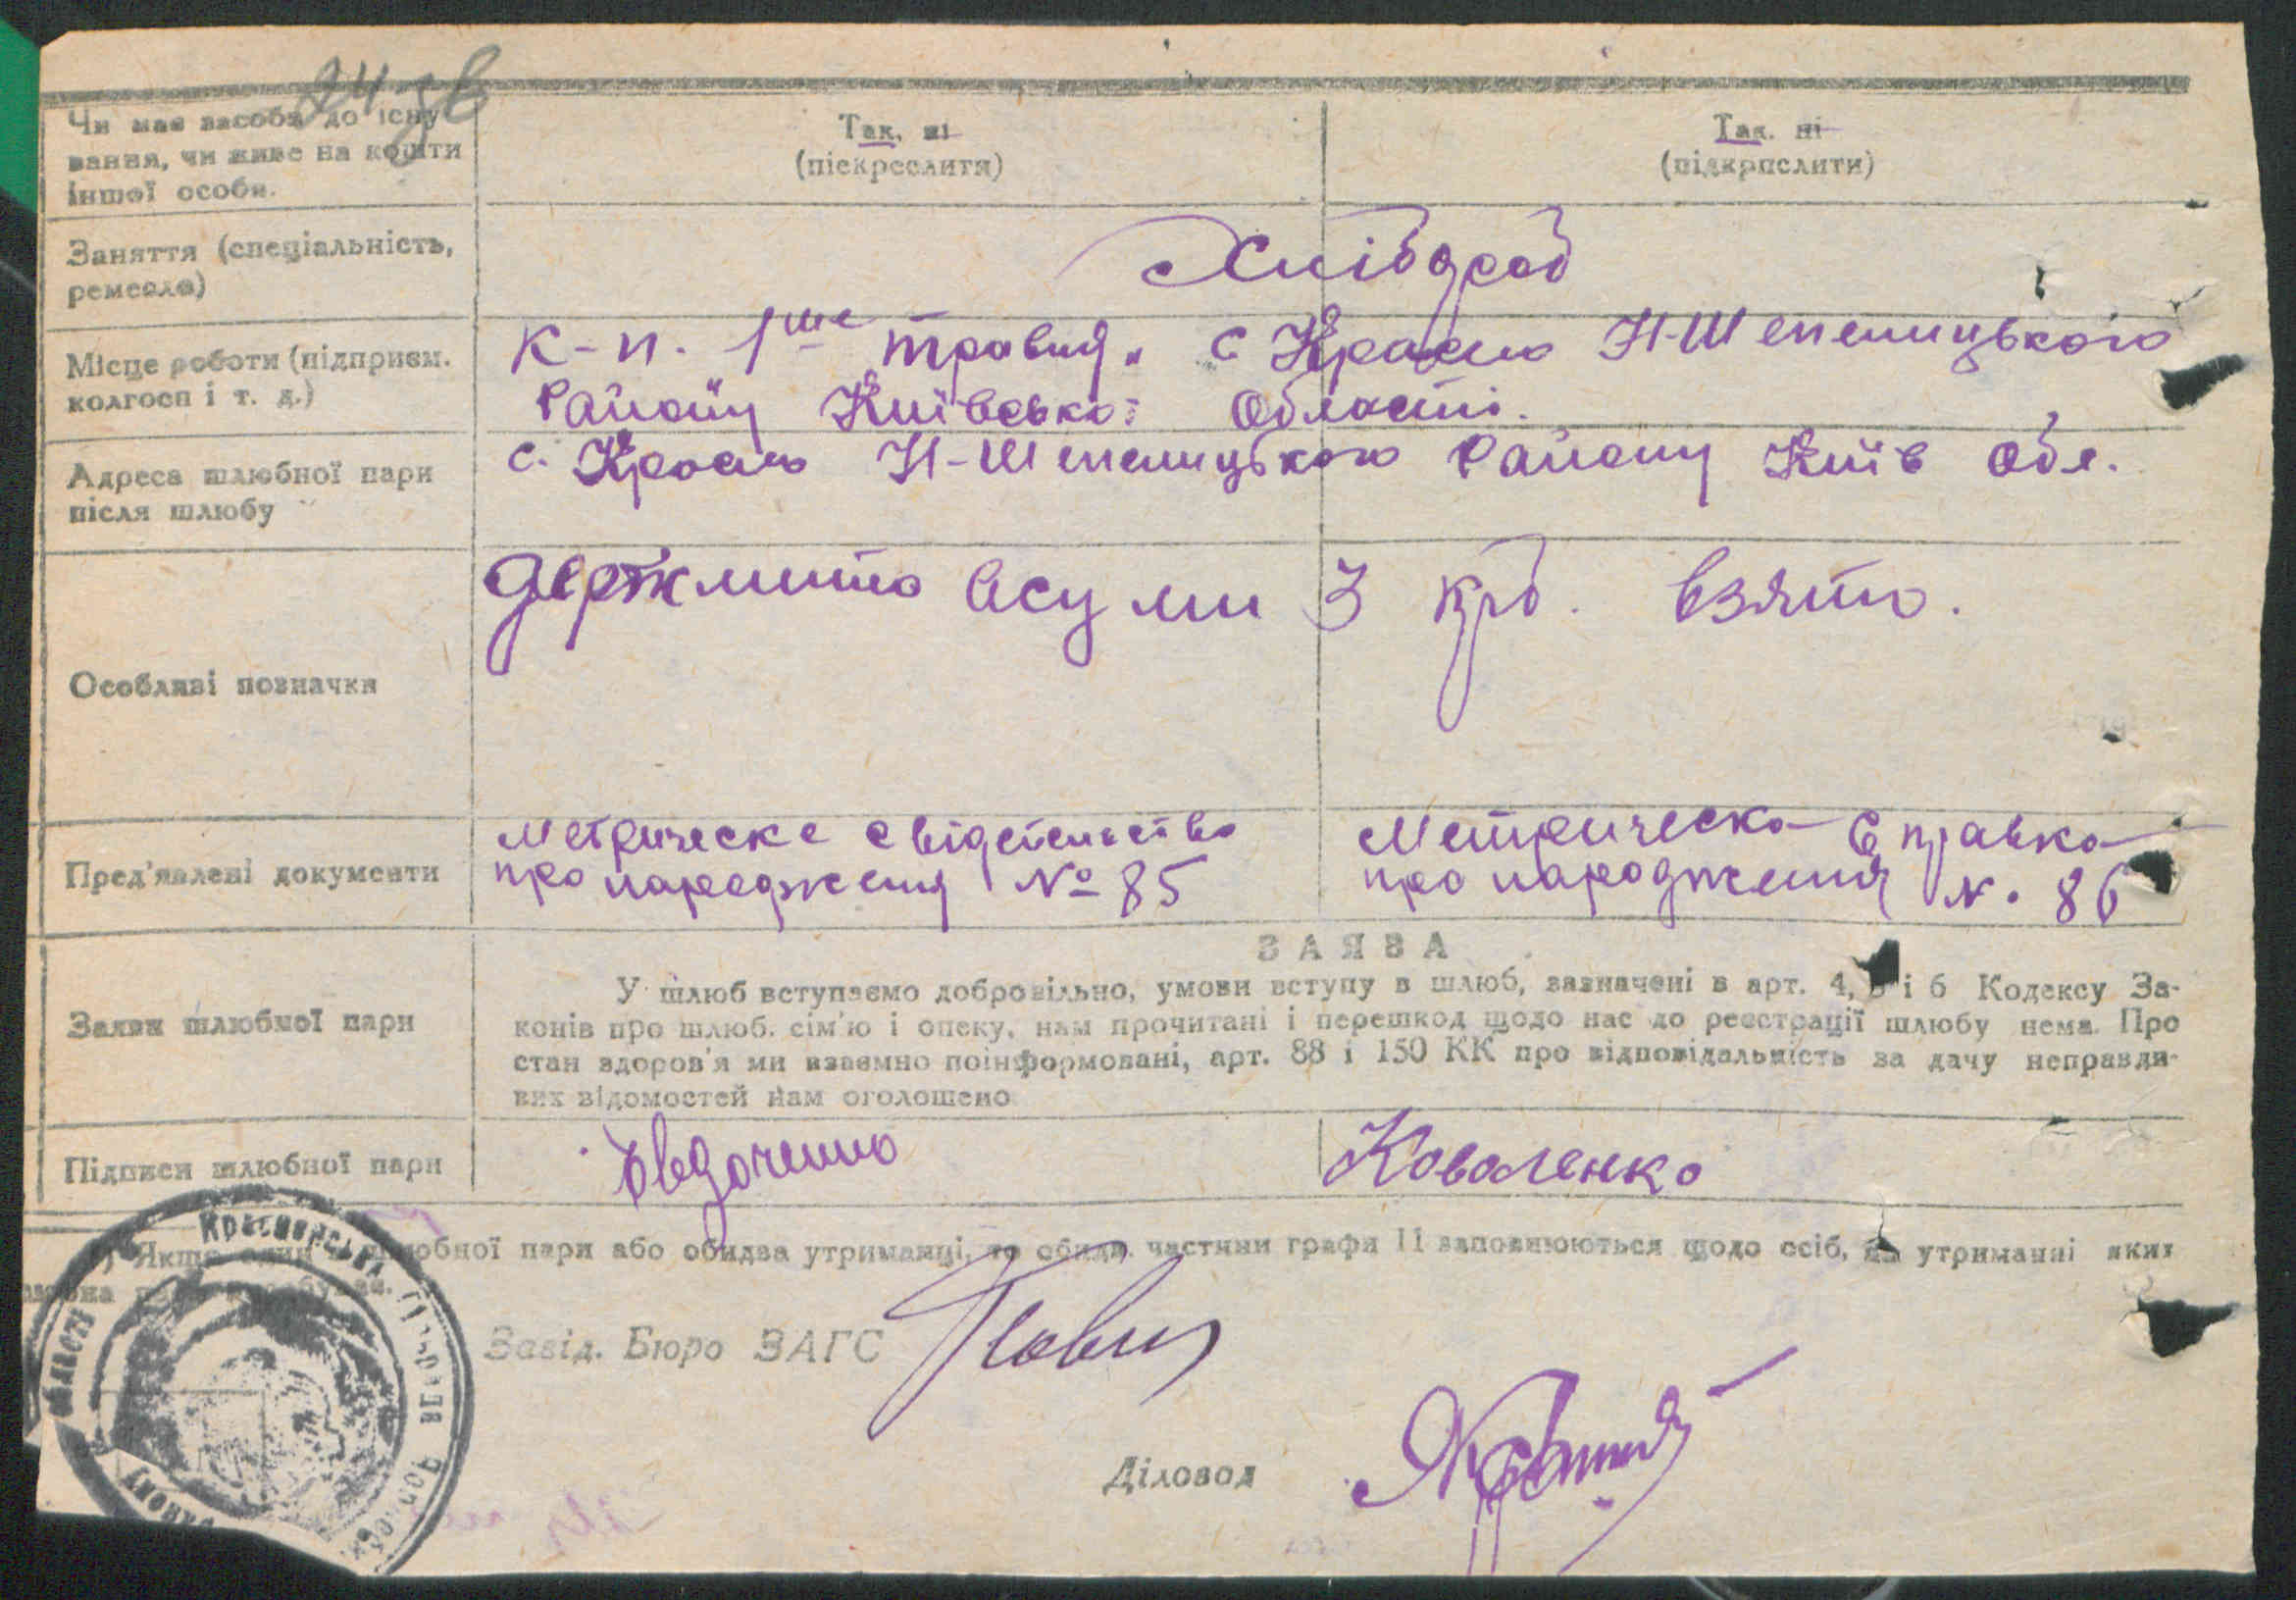 24 зв
Чи має засоби до існу
вання, чи живе на кошти
іншої особи.
Так, ні
(піекреслити)
Так. ні
(підкрпслити)
Заняття (спеціальність,
ремесла)
Хлібороб
Місце роботи (підприєм.
колгосп і т. д.)
к-п. 1ше травня. с Красно Н-Шепелицького
Району Київської Області.
Адреса шлюбної пари
після шлюбу
с. Красно Н-Шепелицького Району Київ Обл.
Особливі позначки
держмито всуми 3 крб. взято.
Пред'явлені документи
Метрическе свідетельство
про народження № 85
Метрическа Справка
про народження №. 86
Заява шлюбної пари
ЗАЯВА
У шлюб вступаємо добровільно, умови вступу в шлюб, зазначені в арт. 4, 5 і 6 Кодексу За-
конів про шлюб. сім'ю і опеку, нам прочитані і перешкод щодо нас до реєстрації шлюбу нема. Про
стан здоров'я ми взаємно поінформовані, арт. 88 і 150 КК про відповідальність за дачу неправди-
вих відомостей нам оголошено
Підписи шлюбної пари
Коваленко
Якщо один шлюбної пари або обидва утриманці, то обидві частини графи 11 заповнюються щодо осіб, на утриманні яких
Завід. Бюро ЗАГС
Діловод
області